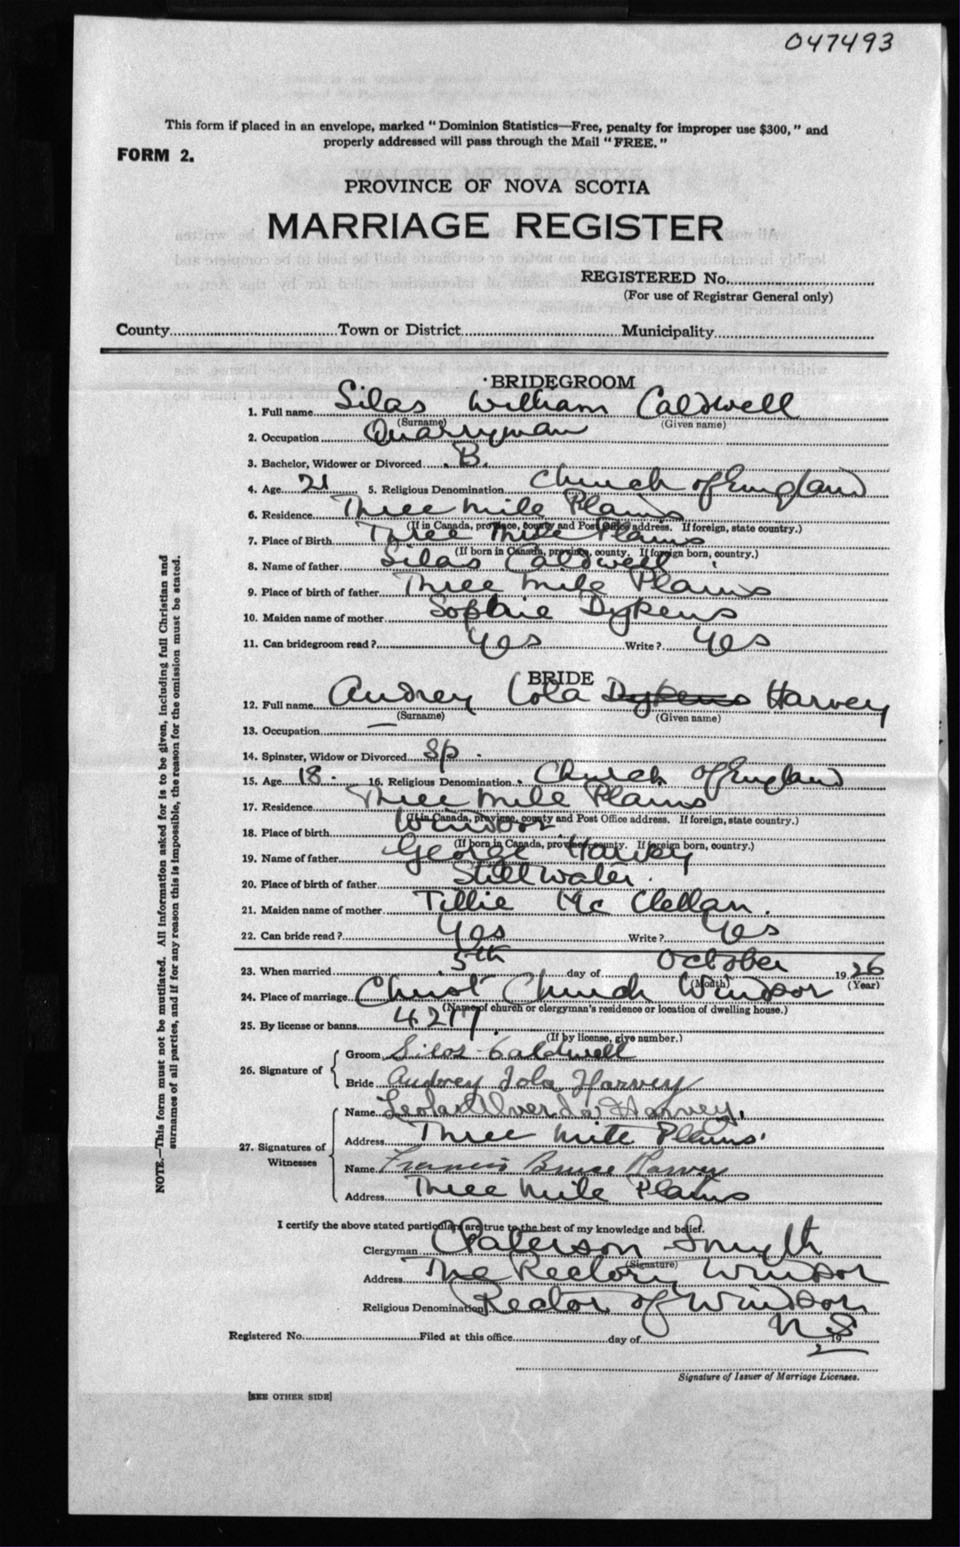 047493
This form if placed in an envelope, marked "Dominion Statistics—Free, penalty for improper use $300," and
properly addressed will pass through the Mail "FREE."
FORM 2.
PROVINCE OF NOVA SCOTIA
MARRIAGE REGISTER
REGISTERED No.
(For use of Registrar General only)
County Town or District Municipality
BRIDEGROOM
1. Full name Silas William Caldwell
(Surname) (Given name)
2. Occupation Quarryman
3. Bachelor, Widower or Divorced B.
4. Age 21 5. Religious Denomination Church of England
6. Residence Three Mile Plains
(If in Canada, province, county and Post Office address. If foreign, state country.)
7. Place of Birth Three Mile Plains
(If born in Canada, province, county. If foreign born, country.)
8. Name of father Silas Caldwell
9. Place of birth of father Three Mile Plains
10. Maiden name of mother Sophie Dykens
11. Can bridegroom read? Yes Write? Yes
BRIDE
12. Full name Audrey Iola Dykens Harvey
(Surname) (Given name)
13. Occupation —
14. Spinster, Widow or Divorced Sp.
15. Age 18 16. Religious Denomination Church of England
17. Residence Three Mile Plains
(If in Canada, province, county and Post Office address. If foreign, state country.)
18. Place of birth Windsor
(If born in Canada, province, county. If foreign born, country.)
19. Name of father George Harvey
20. Place of birth of father Stillwater.
21. Maiden name of mother Tillie Mc Clellan.
22. Can bride read? Yes Write? Yes
23. When married 5th day of October 1926
(Month) (Year)
24. Place of marriage Christ Church Windsor
(Name of church or clergyman's residence or location of dwelling house.)
25. By license or banns 4217.
(If by license, give number.)
26. Signature of Groom Silas Caldwell
Bride Audrey Iola Harvey
27. Signatures of Witnesses Name Harvey.
Address Three Mile Plains
Name Francis Bruce Harvey
Address Three Mile Plains
I certify the above stated particulars are true to the best of my knowledge and belief.
Clergyman Paterson Smyth
(Signature)
Address The Rectory Windsor
Religious Denomination Rector of Windsor
N.S.
Registered No. Filed at this office day of 19
Signature of Issuer of Marriage Licenses.
[SEE OTHER SIDE]
NOTE.—This form must not be mutilated. All information asked for is to be given, including full Christian and
surnames of all parties, and if for any reason this is impossible, the reason for the omission must be stated.